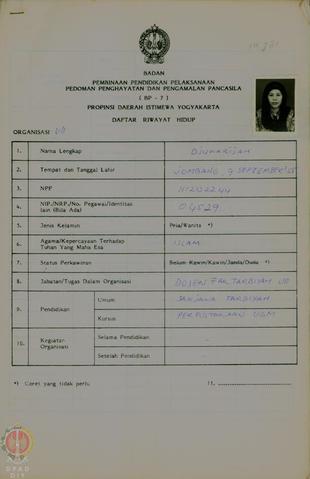 BADAN
PEMBINAAN PENDIDIKAN PELAKSANAAN
PEDOMAN PENGHAYATAN DAN PENGAMALAN PANCASILA
( BP - 7 )
PROPINSI DAERAH ISTIMEWA YOGYAKARTA
DAFTAR RIWAYAT HIDUP
ORGANISASI UII
1. Nama Lengkap DJUMARIJAH
2. Tempat dan Tanggal Lahir JOMBANG 9 SEPTEMBER
3. NPP
4. NIP./NRP./No. Pegawai/Identitas lain (Bila Ada) 04529
5. Jenis Kelamin Pria/Wanita *)
6. Agama/Kepercayaan Terhadap Tuhan Yang Maha Esa ISLAM
7. Status Perkawinan Belum Kawin/Kawin/Janda/Duda *)
8. Jabatan/Tugas Dalam Organisasi DOSEN FAK TARBIYAH UII
9. Pendidikan Umum SARJANA TARBIYAH
Kursus PERPUSTAKAAN UGM
10. Kegiatan Organisasi Selama Pendidikan -
Setelah Pendidikan -
*) Coret yang tidak perlu 11. ....................
DPAD
DIY